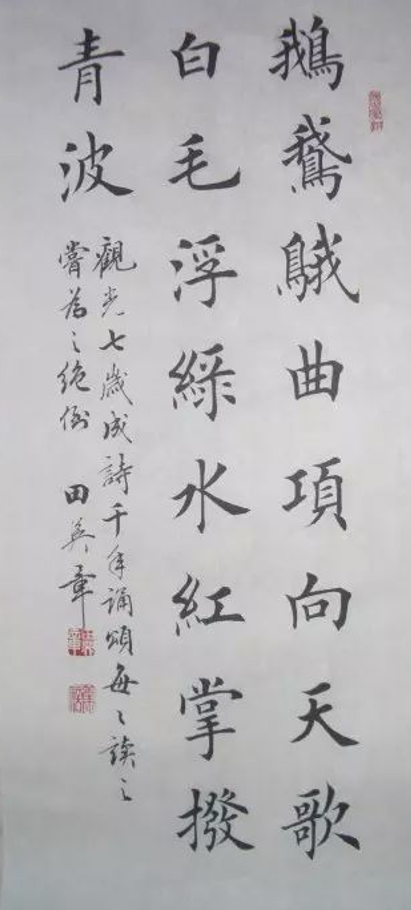 鵝鵞䳘曲項向天歌
白毛浮綠水紅掌撥
青波
觀光七歲成詩千年誦頌每々讀之
嘗為之絕倒 田英章